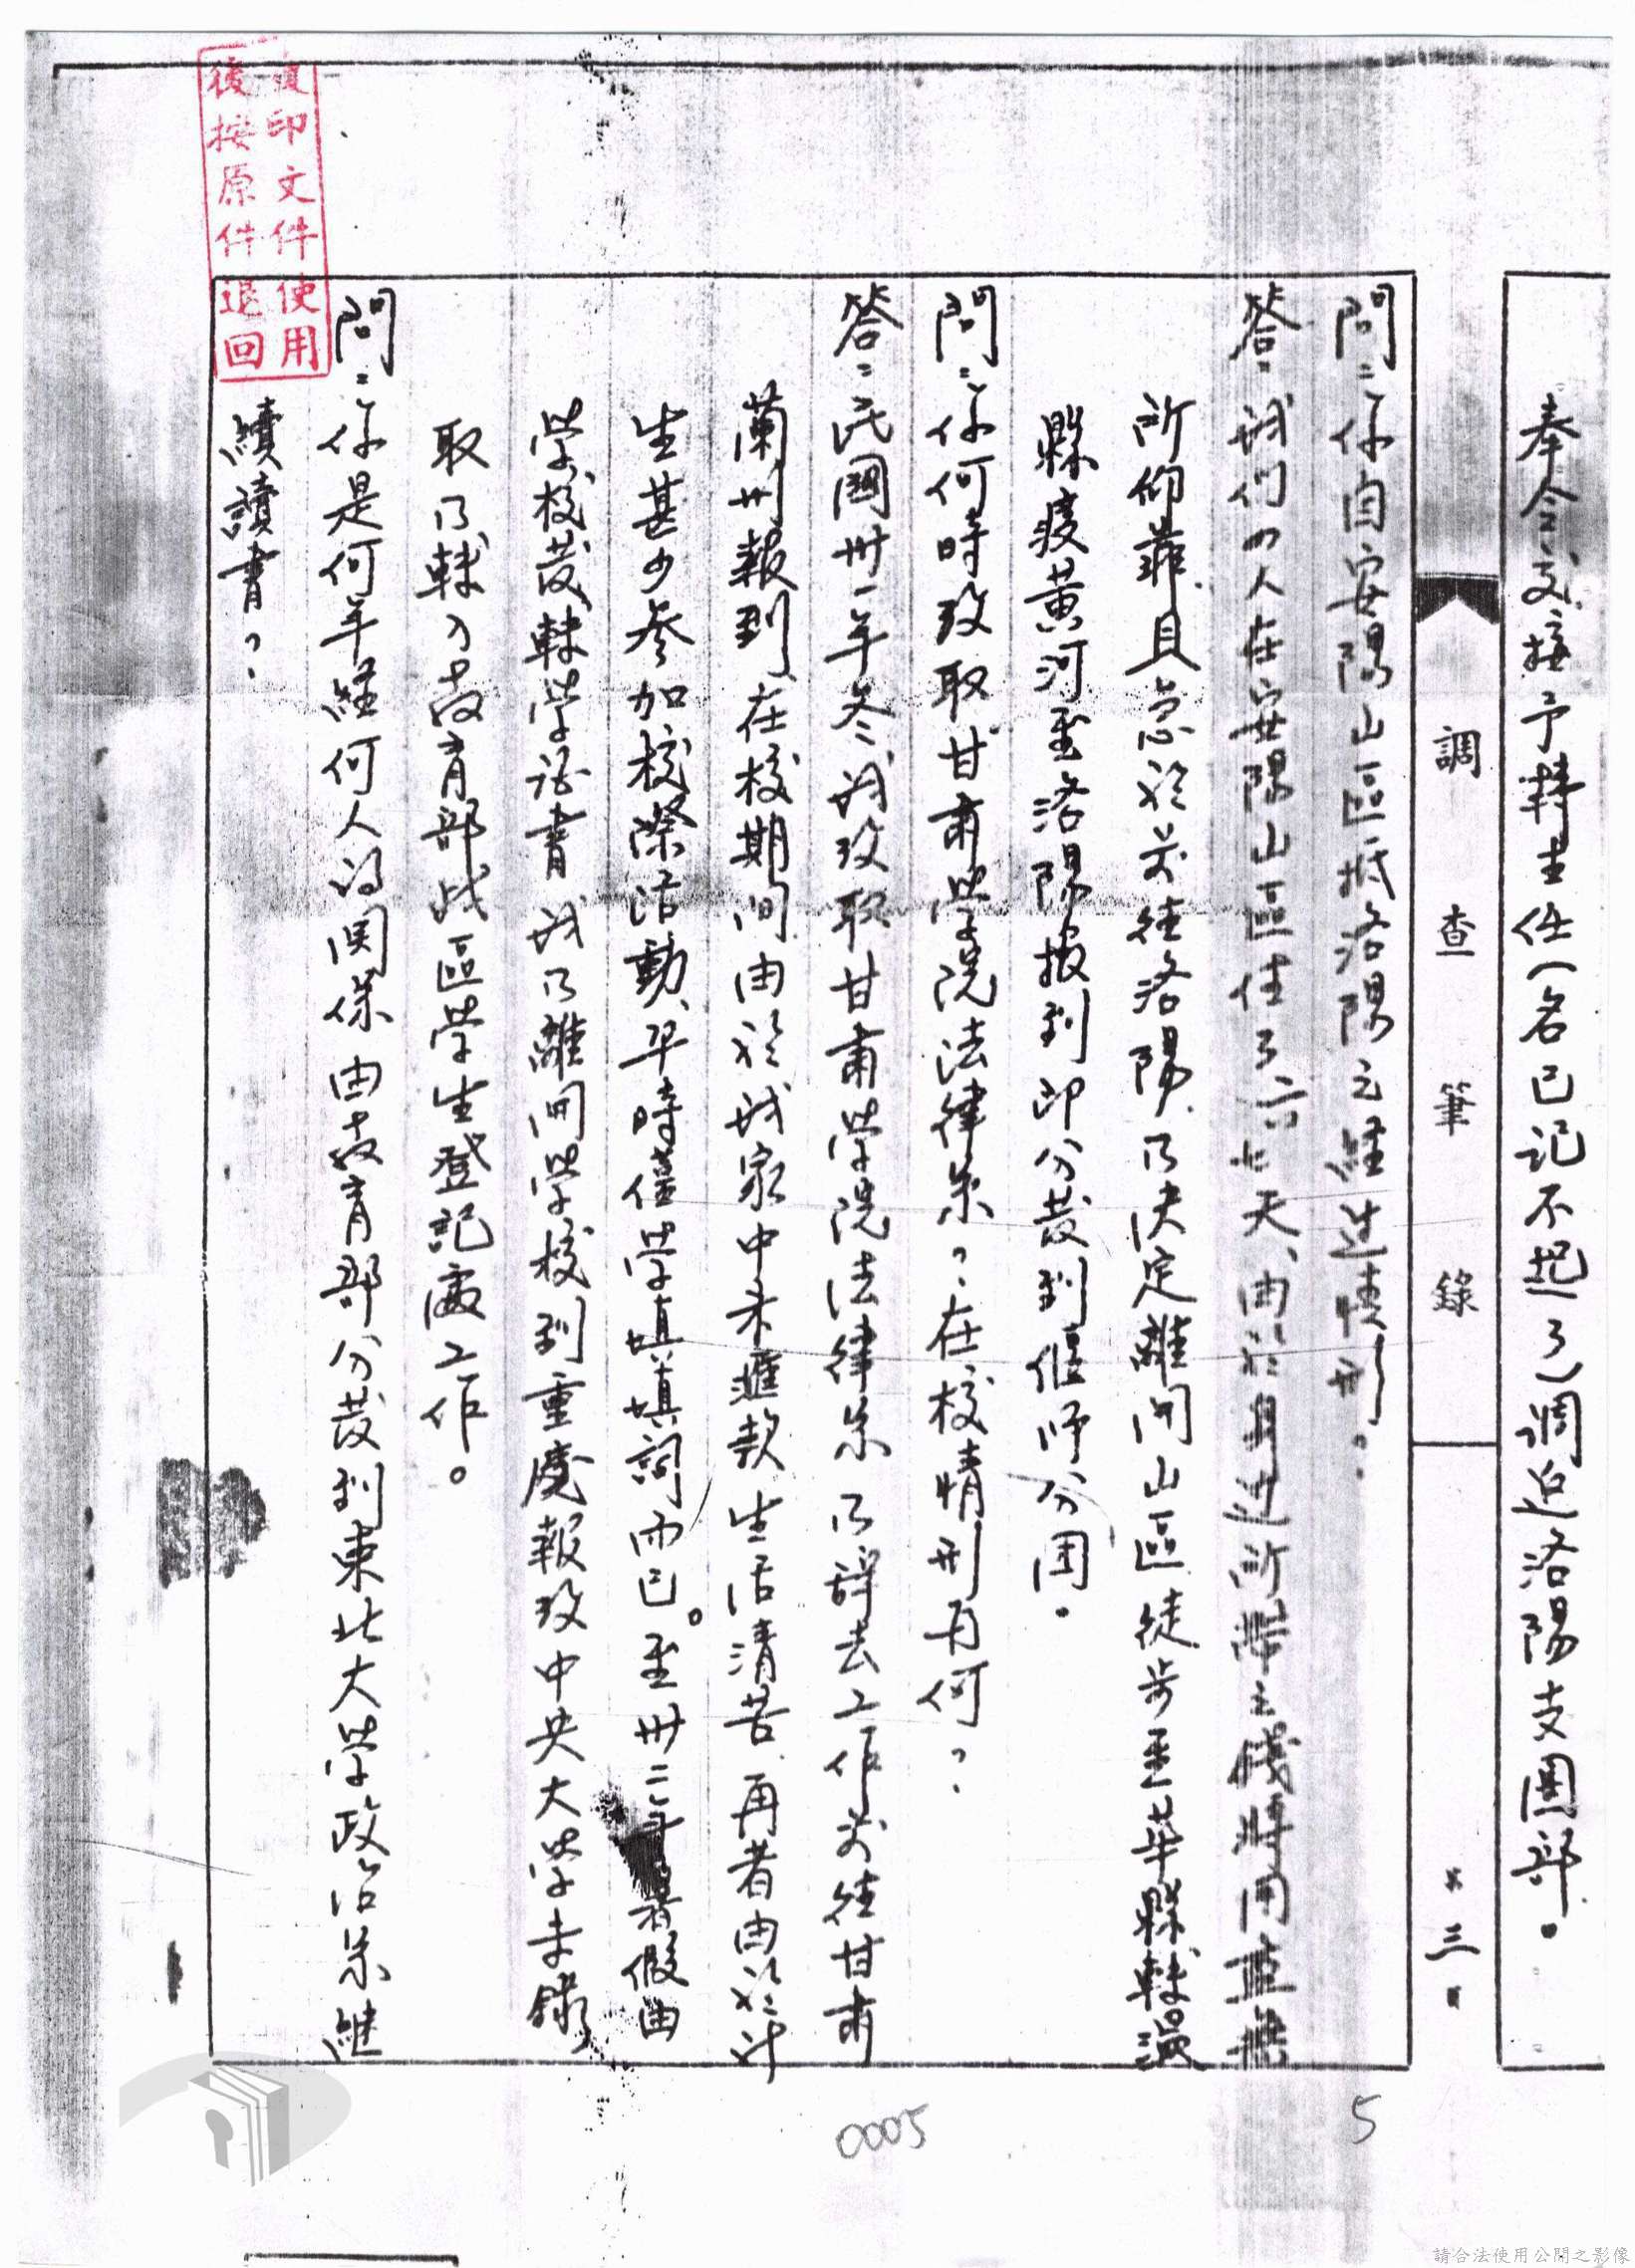 奉令交接予韓主任(名已記不起了)調返洛陽支團部。
調查筆錄
三
問:你自安陽山區抵洛陽之經過情形。
答:我們四人在安陽山區住了六七天,由於身邊所帶之錢將用
所仰靠且急於前往洛陽乃決定離開山區徒步至華縣轉
縣渡黃河至洛陽報到即分發到偃師分團。
問:你何時攷取甘肅學院法律系?在校情形为何?
答:民國卅一年冬我攷取甘肅學院法律系乃辭去工作前往甘肅
蘭州報到,在校期间由於我家中未匯款生活清苦,再者由於
生甚少參加校際活動,平時僅學填填詞而已。至卅二年暑假由
學校發轉學證書我乃離開學校到重慶報攷中央大學未錄
取乃轉入教育部战區學生登記處工作。
問:你是何年經何人的関係由教育部分發到東北大學政治系繼
續讀書?
復印文件使用
後按原件退回
0005
5
請合法使用公開之影像